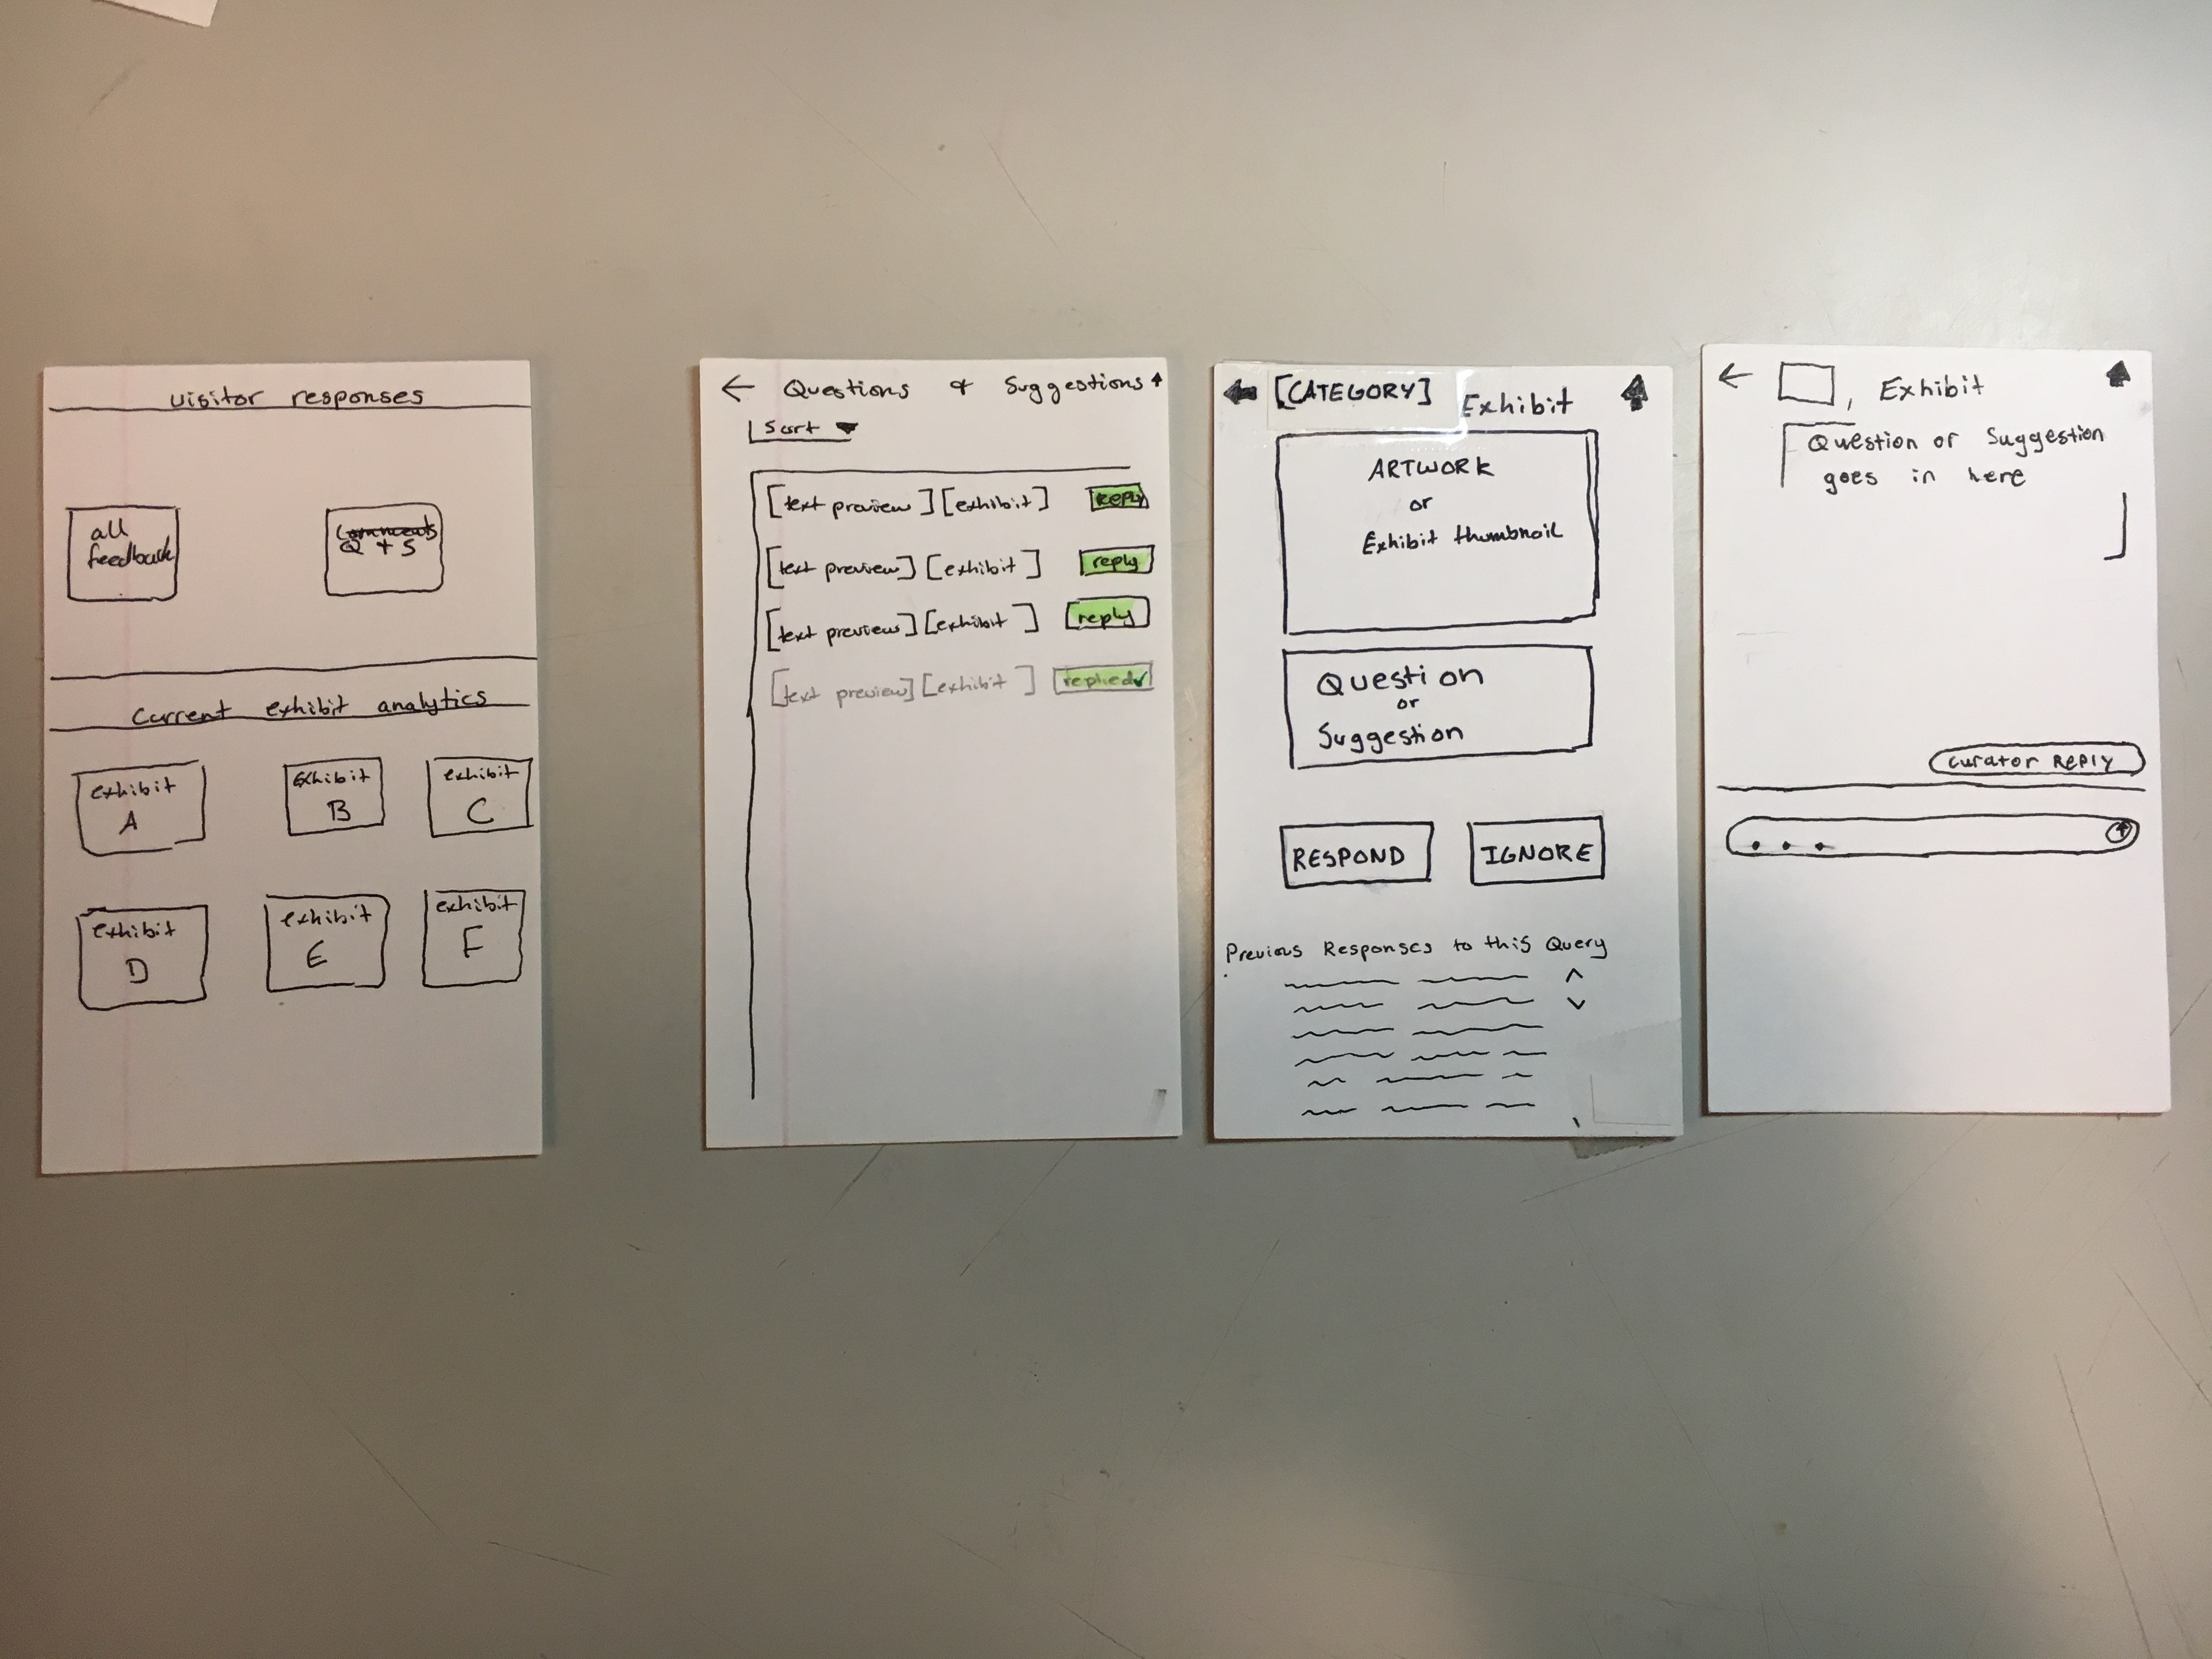 visitor responses
all feedback
Comments
Q + S
current exhibit analytics
exhibit A
exhibit B
exhibit C
exhibit D
exhibit E
exhibit F
← Questions & Suggestions
Sort ▼
[text preview] [exhibit] reply
[text preview] [exhibit] reply
[text preview] [exhibit] reply
[text preview] [exhibit] replied✓
[CATEGORY] Exhibit
ARTWORK
or
Exhibit thumbnail
Question
or
Suggestion
RESPOND IGNORE
Previous Responses to this Query
← , Exhibit
Question or Suggestion
goes in here
curator reply